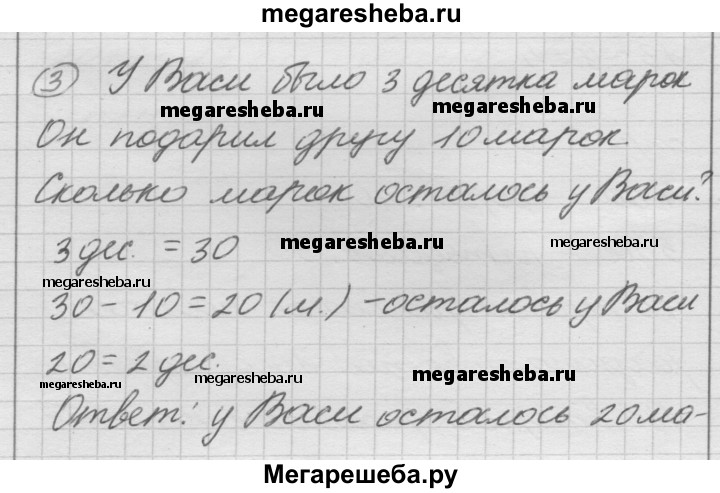 megaresheba.ru
③ У Васи было 3 десятка марок
megaresheba.ru megaresheba.ru
Он подарил другу 10 марок.
Сколько марок осталось у Васи?
3 дес. = 30 megaresheba.ru megaresheba.ru
megaresheba.ru
30 - 10 = 20 (м.) - осталось у Васи
20 = 2 дес.
megaresheba.ru megaresheba.ru megaresheba.ru
Ответ: у Васи осталось 20 ма-
Мегарешеба.ру